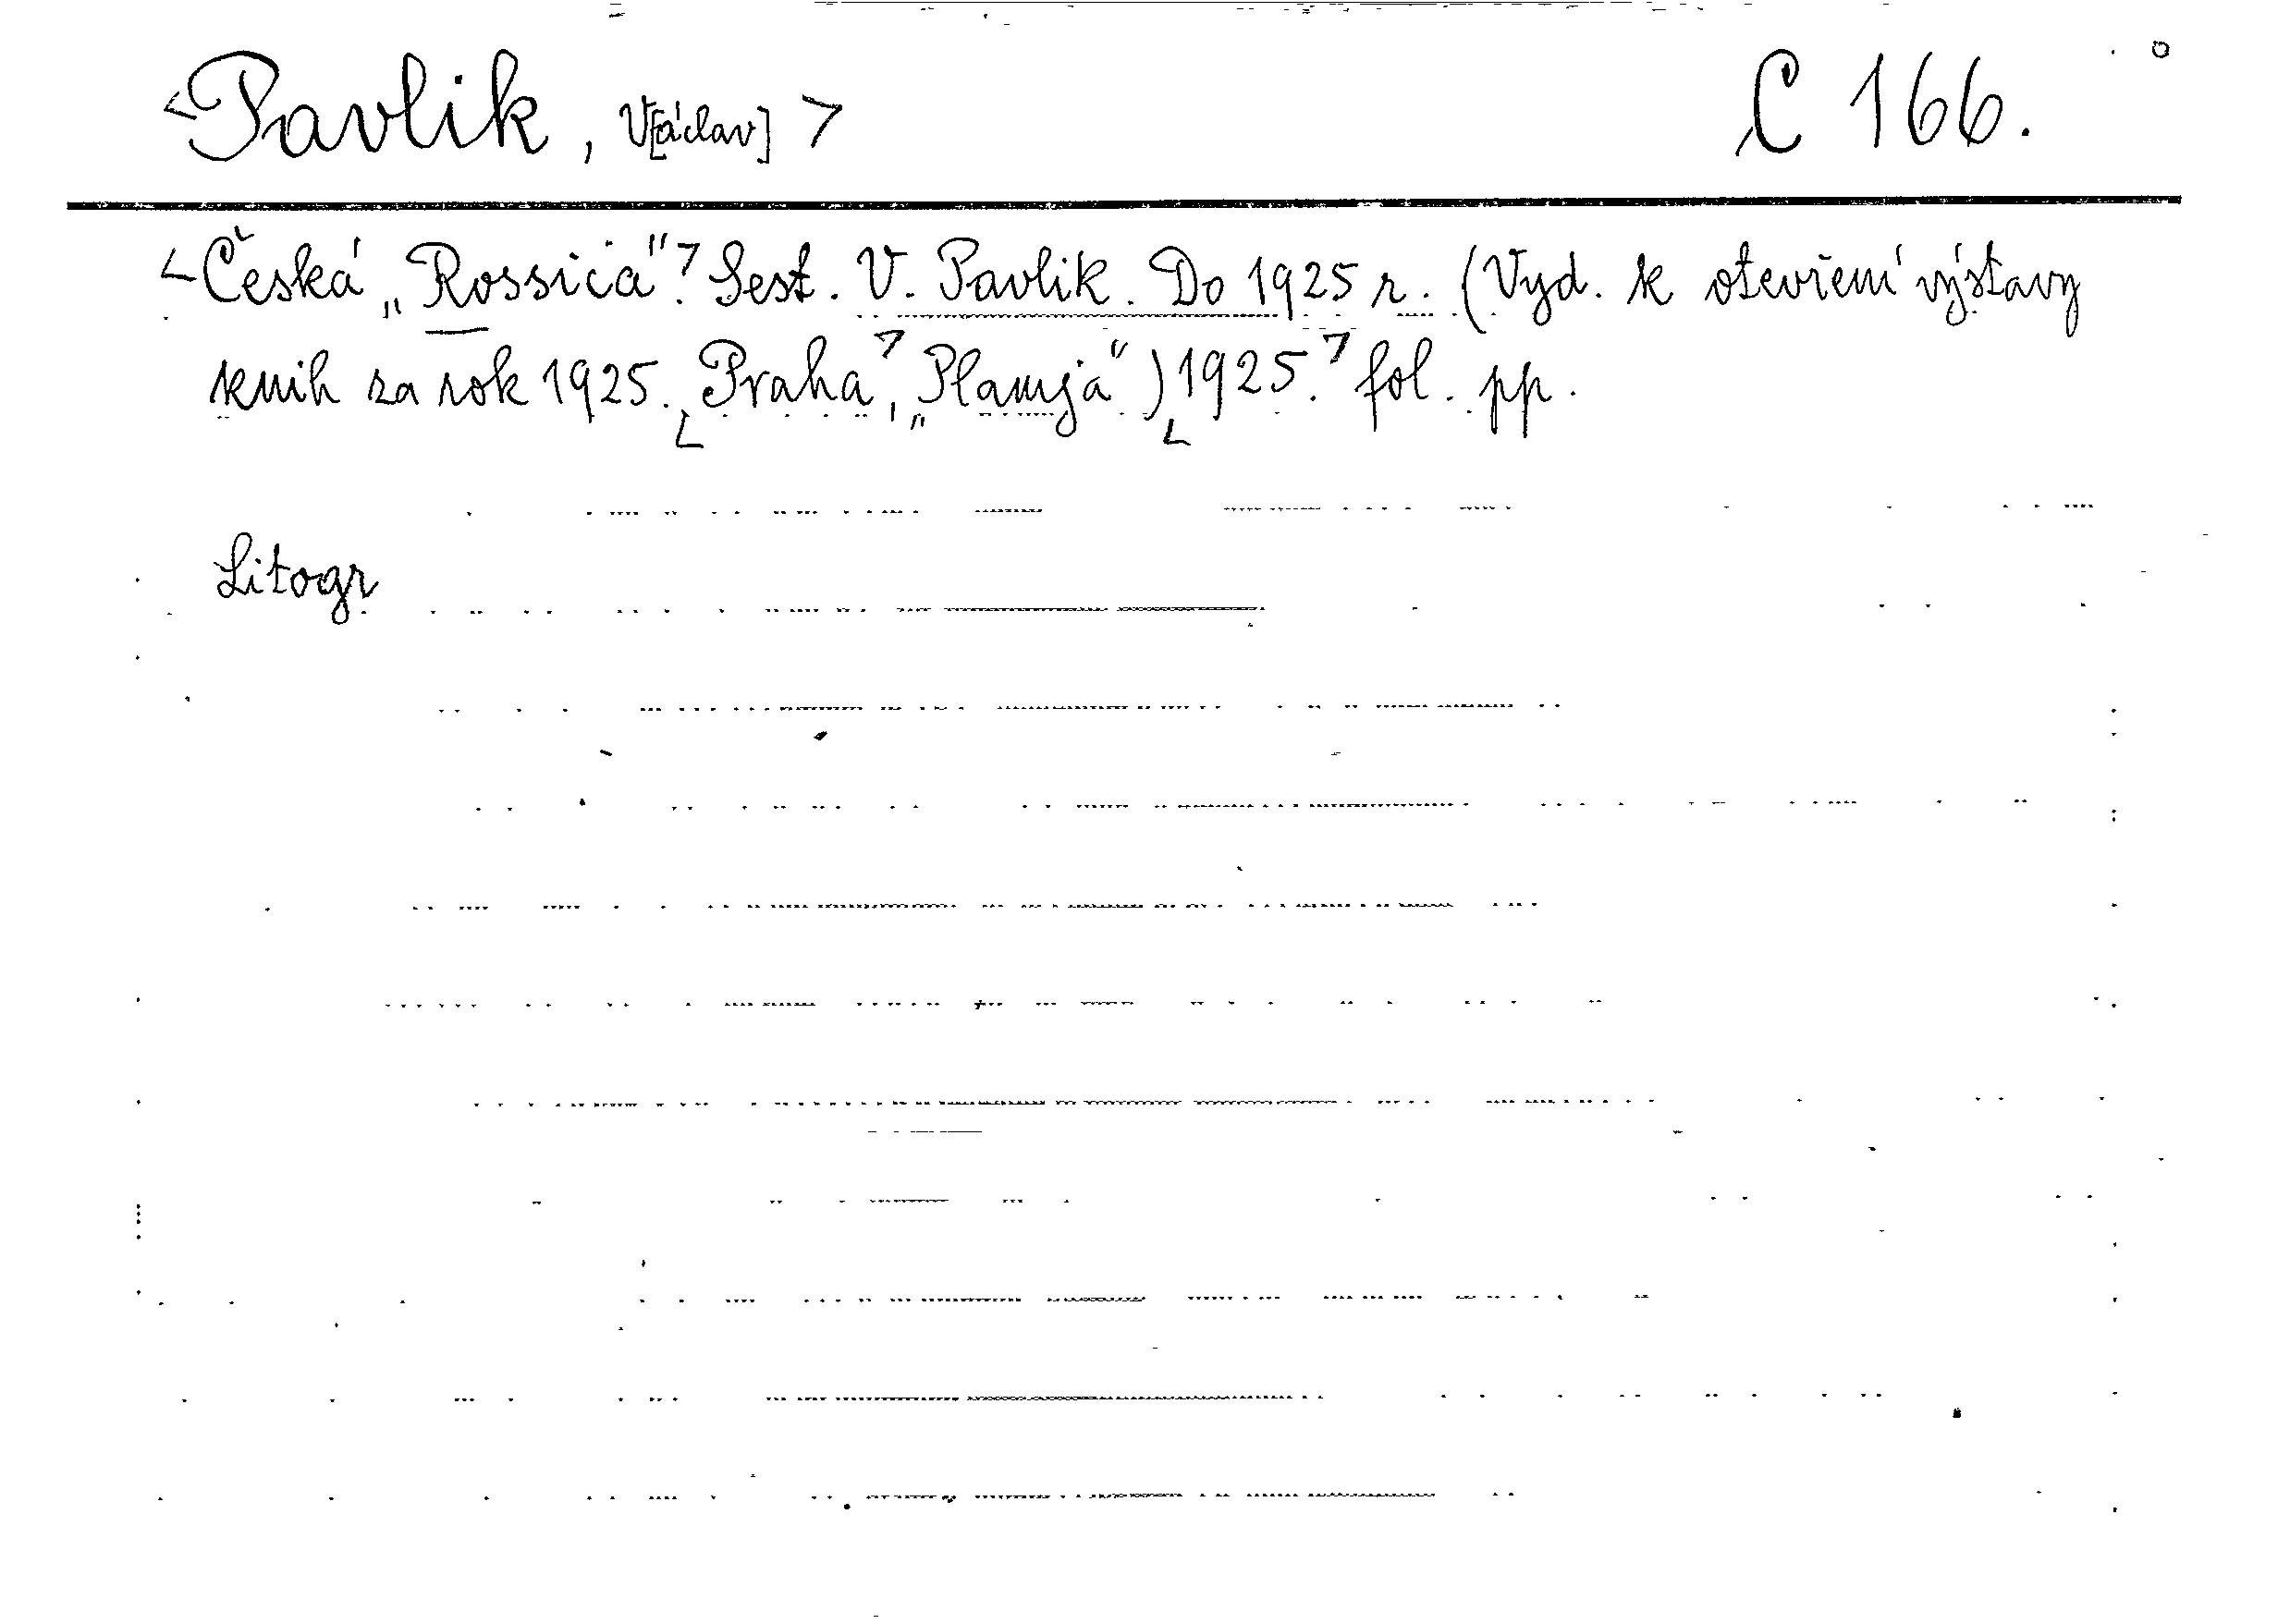 <Pavlik, V[áclav]> C 166.
<Česká „Rossica“.> Sest. V. Pavlik. Do 1925 r. (Vyd. k otevření výstavy
knih za rok 1925. <Praha,> „Plamja“) <1925.> fol. pp.
Litogr